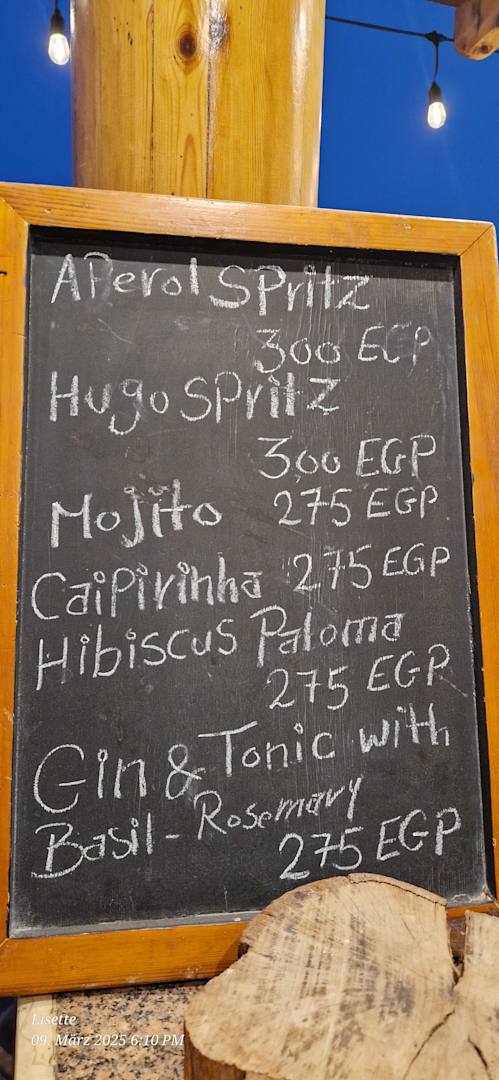 Aperol Spritz
300 EGP
Hugo Spritz
300 EGP
Mojito 275 EGP
Caipirinha 275 EGP
Hibiscus Paloma
275 EGP
Gin & Tonic with
Basil - Rosemary
275 EGP
Lisette
09. März 2025 6:10 PM